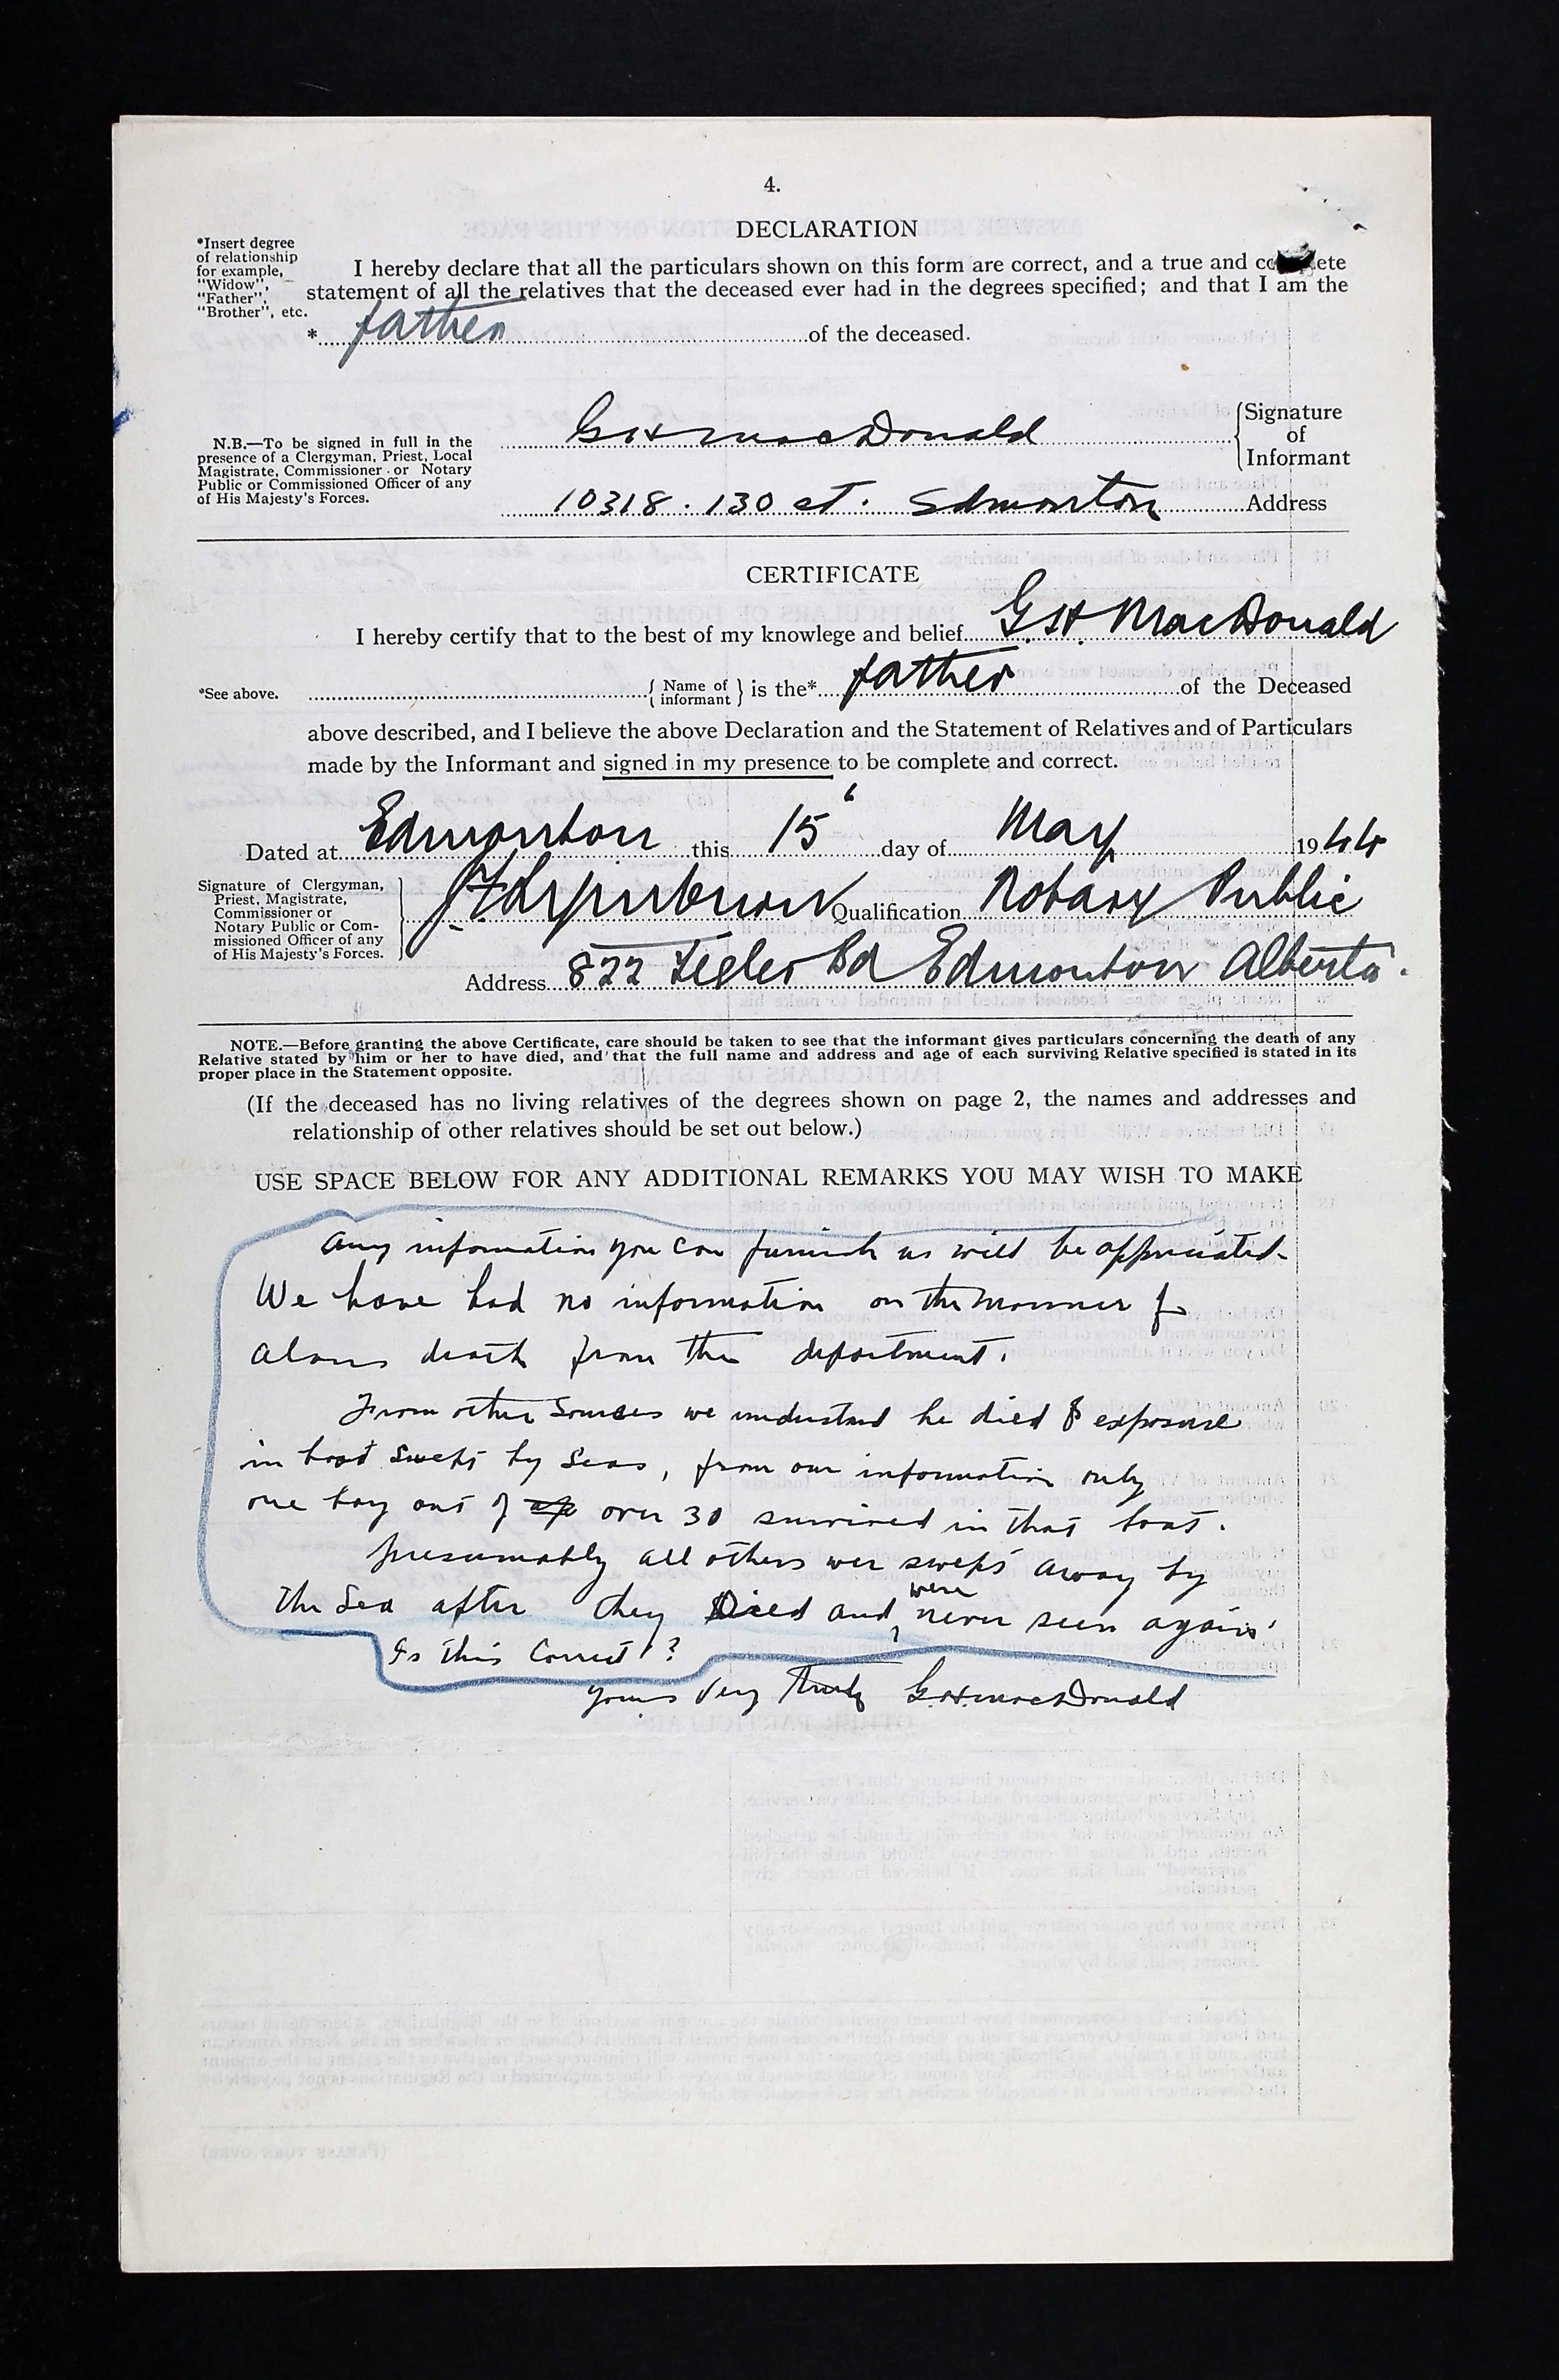 4.
DECLARATION
*Insert degree
of relationship
for example,
"Widow",
"Father",
"Brother", etc.
I hereby declare that all the particulars shown on this form are correct, and a true and co ete
statement of all the relatives that the deceased ever had in the degrees specified; and that I am the
* father of the deceased.
N.B.—To be signed in full in the
presence of a Clergyman, Priest, Local
Magistrate, Commissioner or Notary
Public or Commissioned Officer of any
of His Majesty's Forces.
G H MacDonald
Signature
of
Informant
10318 . 130 st. Edmonton Address
CERTIFICATE
I hereby certify that to the best of my knowlege and belief G.H. MacDonald
*See above. { Name of informant } is the* father of the Deceased
above described, and I believe the above Declaration and the Statement of Relatives and of Particulars
made by the Informant and signed in my presence to be complete and correct.
Dated at Edmonton this 15 day of May 1944
Signature of Clergyman,
Priest, Magistrate,
Commissioner or
Notary Public or Com-
missioned Officer of any
of His Majesty's Forces.
Qualification Notary Public
Address 822 Tegler Bd Edmonton Alberta.
NOTE.—Before granting the above Certificate, care should be taken to see that the informant gives particulars concerning the death of any
Relative stated by him or her to have died, and that the full name and address and age of each surviving Relative specified is stated in its
proper place in the Statement opposite.
(If the deceased has no living relatives of the degrees shown on page 2, the names and addresses and
relationship of other relatives should be set out below.)
USE SPACE BELOW FOR ANY ADDITIONAL REMARKS YOU MAY WISH TO MAKE
Any information you can furnish us will be appreciated.
We have had no information on the manner of
Alans death from the department.
From other sources we understand he died of exposure
in boat swept by seas, from our information only
one boy out of over 30 survived in that boat.
presumably all others wer swept away by
the sea after they Died and were never seen again.
Is this Correct?
Yours Very Truly G.H. MacDonald